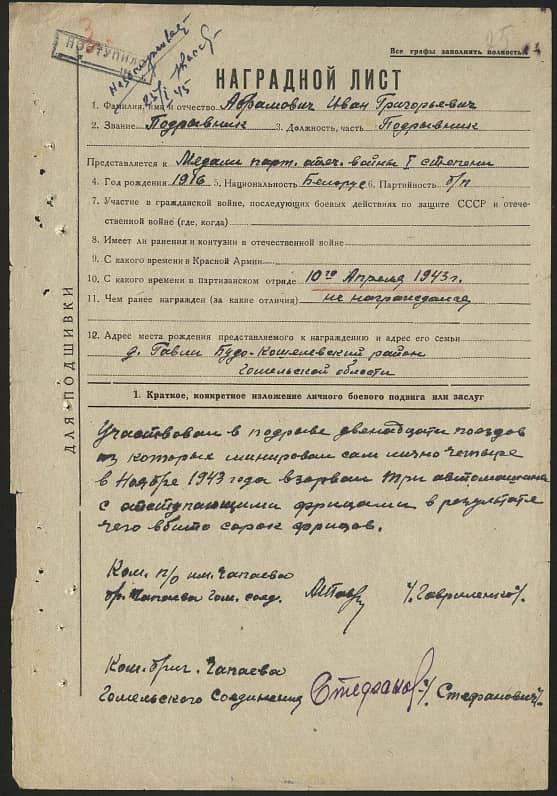 ПОСТУПИЛ
25/I 45
25
Все графы заполнить полностью
НАГРАДНОЙ ЛИСТ
1. Фамилия, имя и отчество Абрамович Иван Григорьевич
2. Звание Подрывник 3. Должность, часть Подрывник
Представляется к Медали парт. отеч. войны I степени
4. Год рождения 1916 5. Национальность Белорус 6. Партийность б/п
7. Участие в гражданской войне, последующих боевых действиях по защите СССР и отече-
ственной войне (где, когда)
8. Имеет ли ранения и контузии в отечественной войне
9. С какого времени в Красной Армии
10. С какого времени в партизанском отряде 10го Апреля 1943 г.
11. Чем ранее награжден (за какие отличия) не награждался
12. Адрес места рождения представляемого к награждению и адрес его семьи
д. Гавли Будо-Кошелевский район
Гомельской области
ДЛЯ ПОДШИВКИ
1. Краткое, конкретное изложение личного боевого подвига или заслуг
Участвовал в подрыве двенадцати поездов
из которых минировал сам лично четыре
в Ноябре 1943 года взорвал три автомашины
с отступающими фрицами в результате
чего вбито сорок фрицов.
Ком. п/о им. Чапаева
бр. Чапаева Гом. соед. /Гавриленко/.
Ком. бриг. Чапаева
Гомельского Соединения Стефанов /Стефанович/.